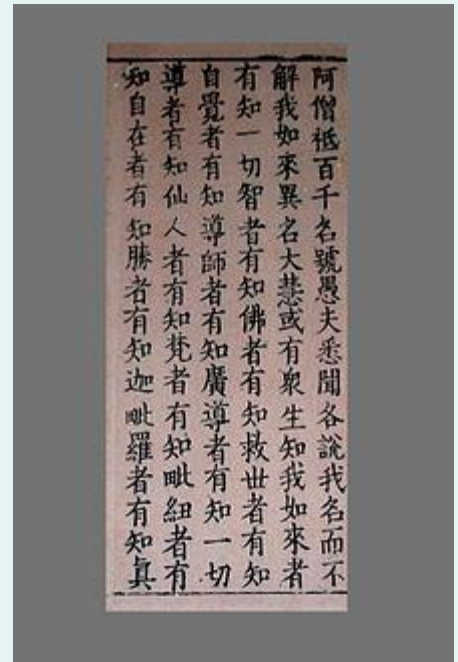 阿僧祗百千名號愚夫悉聞各說我名而不
解我如來異名大慧或有衆生知我如來者
有知一切智者有知佛者有知救世者有知
自覺者有知導師者有知廣導者有知一切
導者有知仙人者有知梵者有知毗紐者有
知自在者有知勝者有知迦毗羅者有知眞